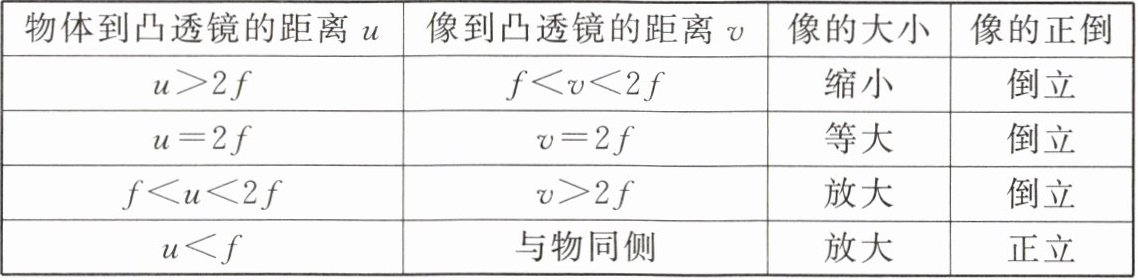 物体到凸透镜的距离 u 像到凸透镜的距离 v 像的大小 像的正倒
u＞2f f＜v＜2f 缩小 倒立
u＝2f v＝2f 等大 倒立
f＜u＜2f v＞2f 放大 倒立
u＜f 与物同侧 放大 正立